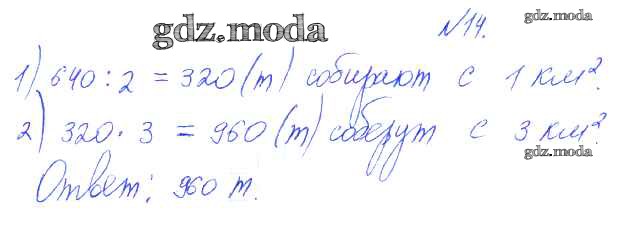 gdz.moda
№14.
gdz.moda
1) 640 : 2 = 320 (т) собирают с 1 км².
2) 320 · 3 = 960 (т) соберут с 3 км².
gdz.moda
Ответ: 960 т.